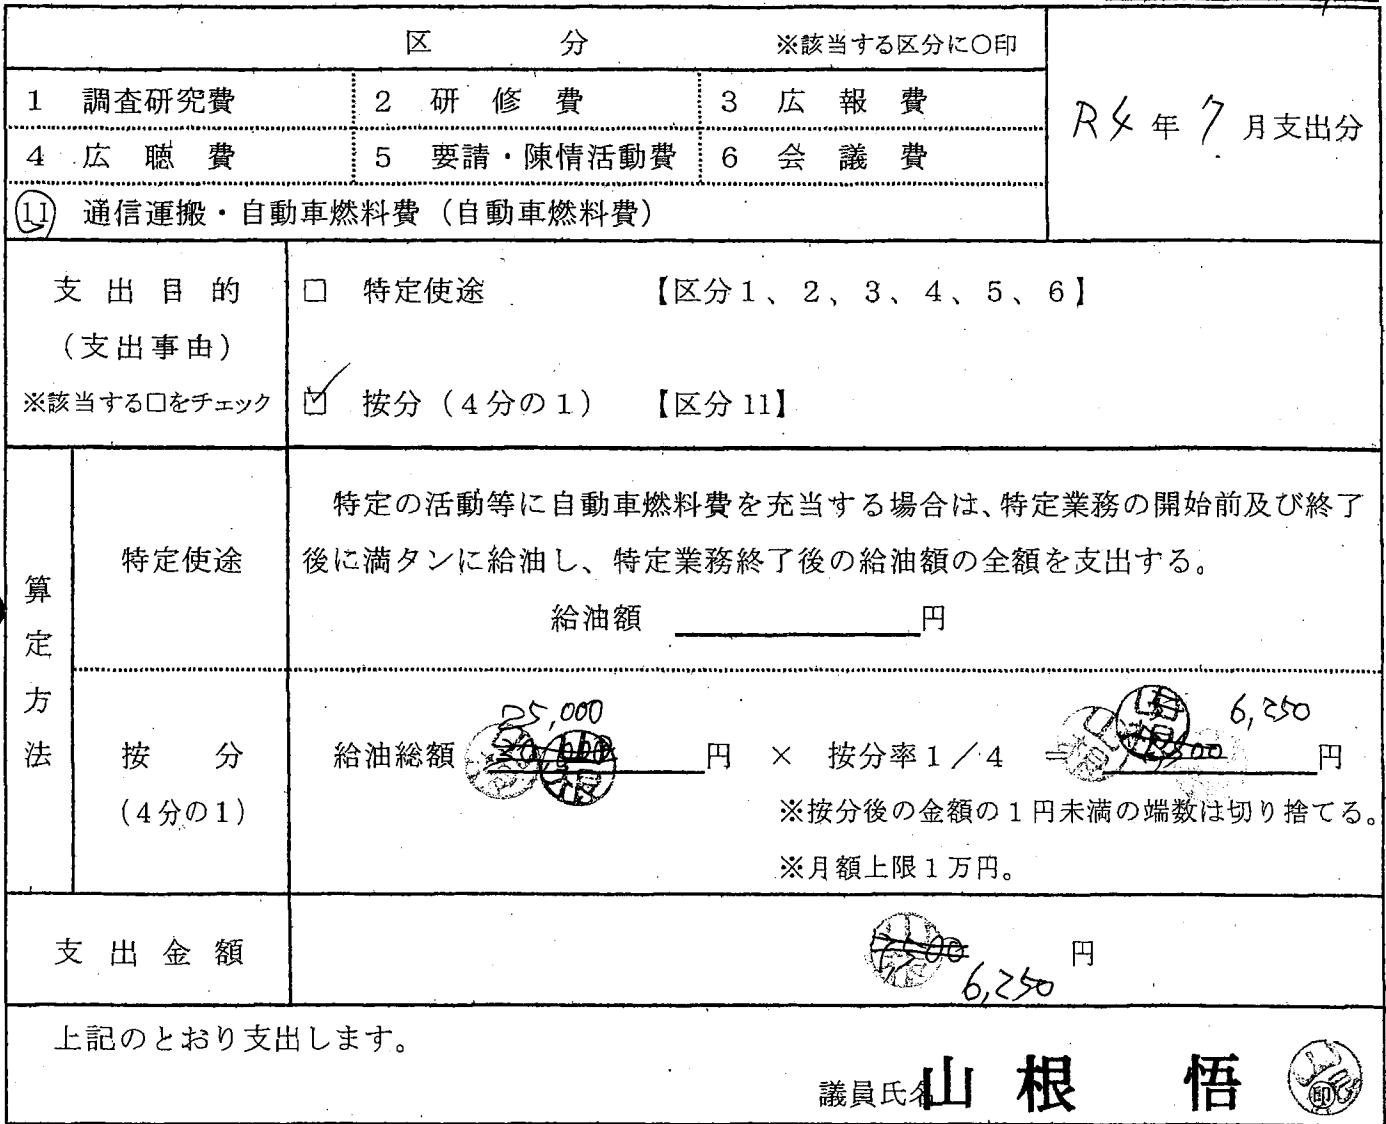 区 分 ※該当する区分に○印
1 調査研究費 2 研修費 3 広報費
R4年7月支出分
4 広聴費 5 要請・陳情活動費 6 会議費
11 通信運搬・自動車燃料費（自動車燃料費）
支出目的
（支出事由）
※該当する□をチェック
□ 特定使途 【区分1、2、3、4、5、6】
☑ 按分（4分の1） 【区分11】
算定方法
特定使途
特定の活動等に自動車燃料費を充当する場合は、特定業務の開始前及び終了
後に満タンに給油し、特定業務終了後の給油額の全額を支出する。
給油額 円
按分
（4分の1）
25,000
6,250
給油総額 30,000 円 × 按分率1／4 ＝ 7500 円
※按分後の金額の1円未満の端数は切り捨てる。
※月額上限1万円。
支出金額
7500 円
6,250
上記のとおり支出します。
議員氏名 山根 悟 印